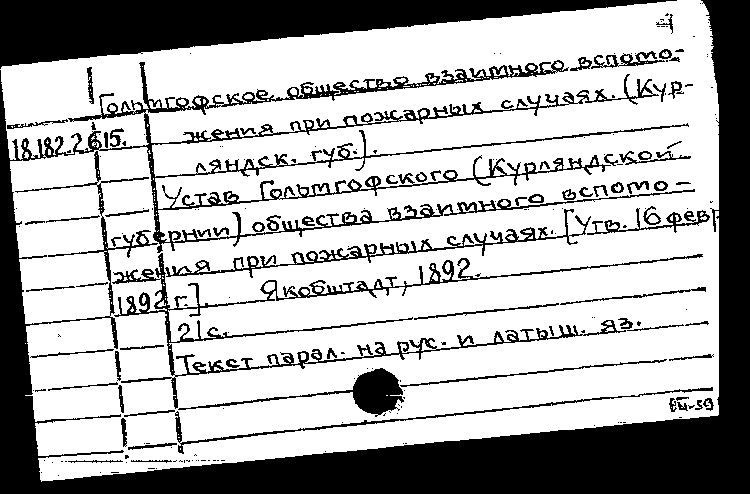 Гольмгофское общество взаимного вспомо-
18.182.2.615. жения при пожарных случаях. (Кур-
ляндск. губ.).
Устав Гольмгофского (Курляндской
губернии) общества взаимного вспомо-
жения при пожарных случаях. [Утв. 16 февр.
1892 г.]. Якобштадт, 1892.
21 с.
Текст парал. на рус. и латыш. яз.